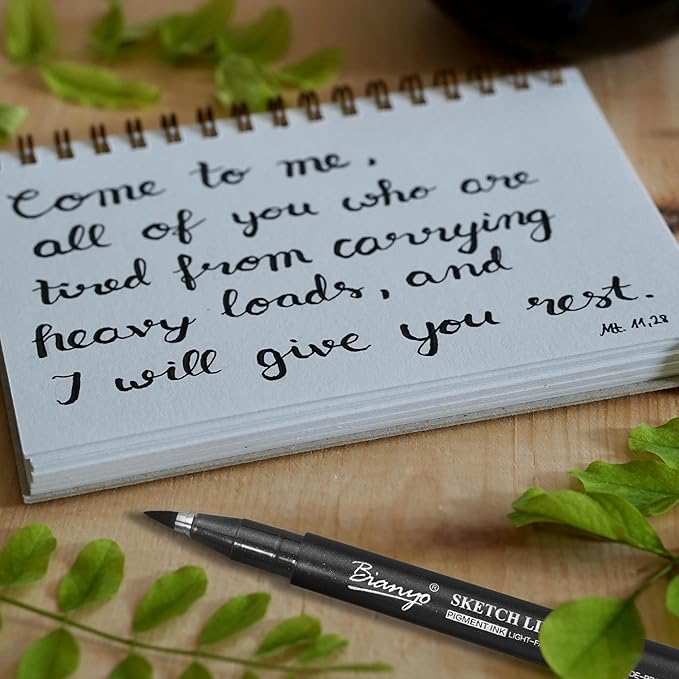 Come to me,
all of you who are
tired from carrying
heavy loads, and
I will give you rest.
Mt. 11,28
Bianyo®
SKETCH LI
PIGMENT INK LIGHT-FA